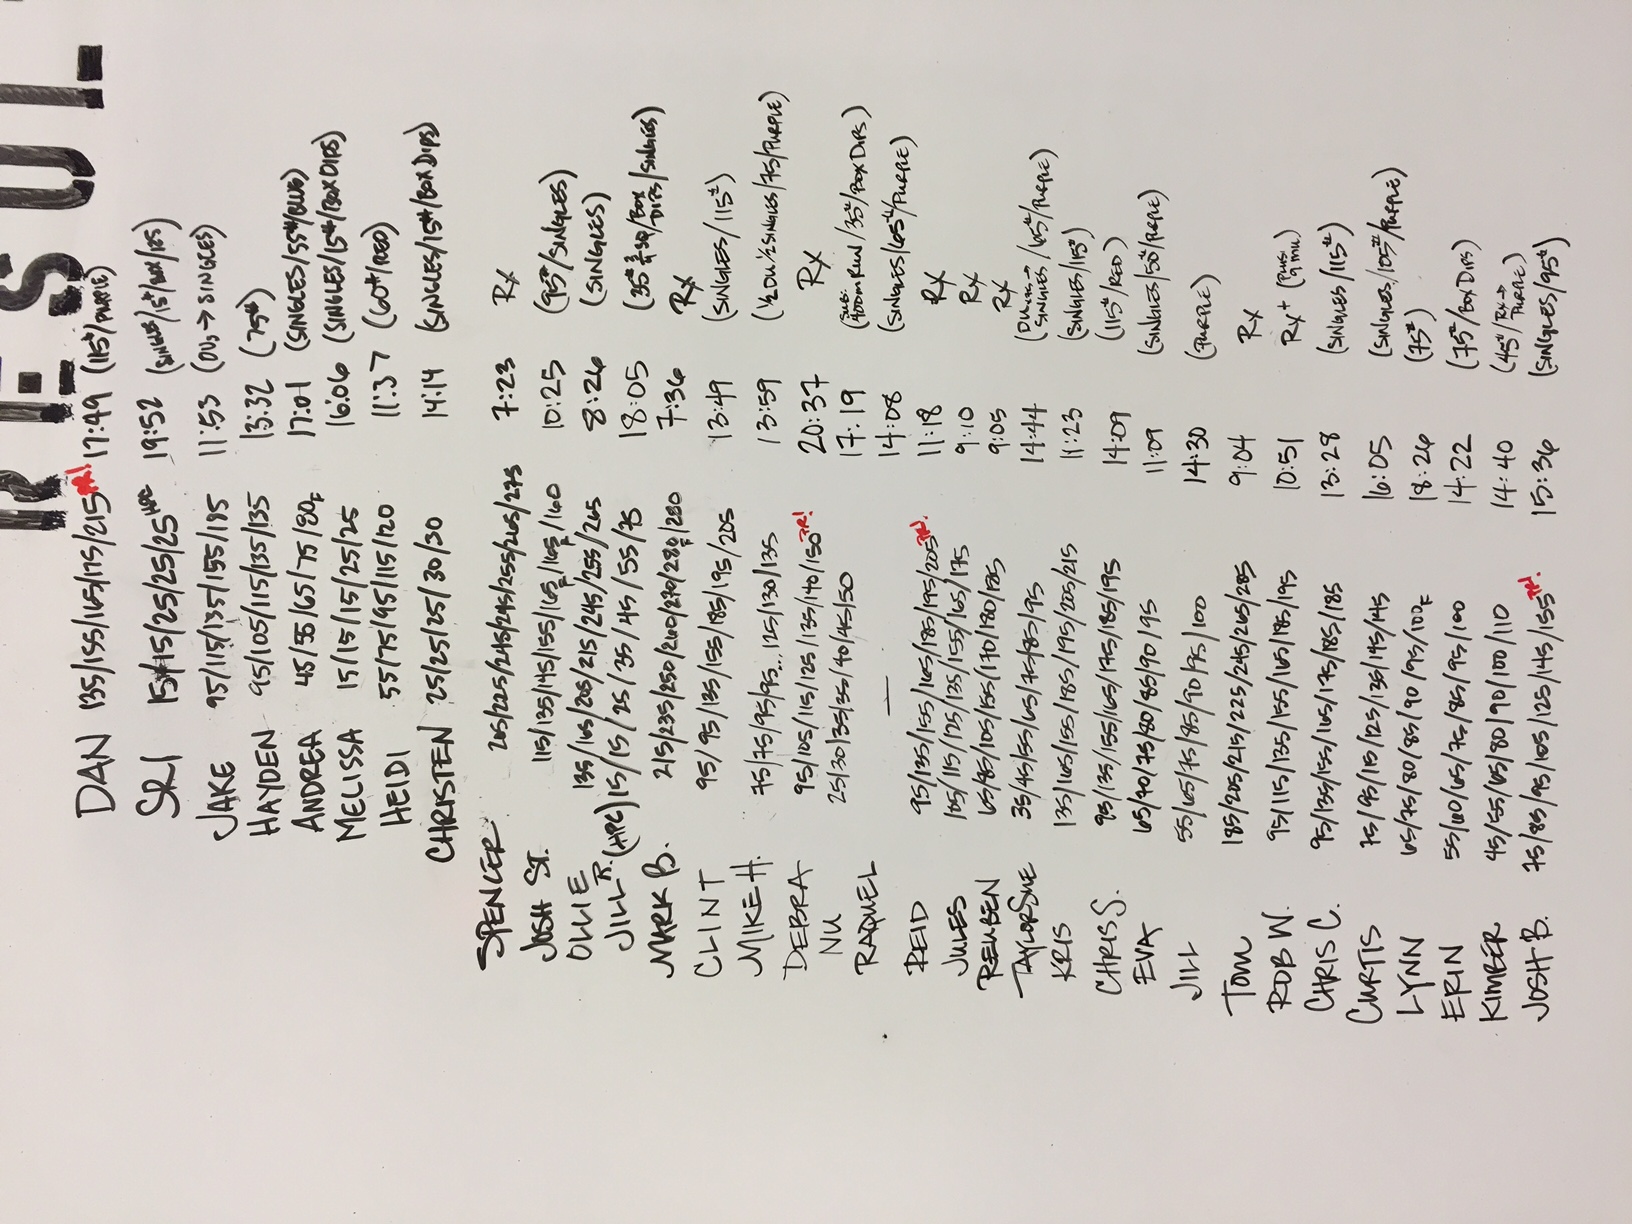 RESUL
DAN 135/155/165/175/215 PR! 17:49 (115#/PURPLE)
SRI 15/15/25/25/25 HPC 19:52 (SINGLES/15#/BOX/)
JAKE 95/115/135/155/185 11:53 (DU→SINGLES)
HAYDEN 95/105/115/135/135 13:32 (75#)
ANDREA 45/55/65/75/80F 17:01 (SINGLES/55#/BLUE)
MELISSA 15/15/15/25/25 16:06 (SINGLES/15#/BOX DIPS)
HEIDI 55/75/95/115/120 11:37 (60#/RED)
CHRISTEN 25/25/25/30/30 14:14 (SINGLES/15#/BOX DIPS)
SPENCER 205/225/245/245/255/265/275 7:23 Rx
JOSH ST. 115/135/145/155/165F/165F/160 10:25 (95#/SINGLES)
OLLIE 135/165/205/215/245/255/265 8:26 (SINGLES)
JILL R. (HPC) 15/15/25/35/45/55/75 18:05 (35#/BOX DIPS/SINGLES)
MARK B. 215/235/250/260/270/280F/280 7:36 Rx
CLINT 95/95/135/155/185/195/205 13:49 (SINGLES/115#)
MIKE H. 75/75/95/95...125/130/135 13:59 (½ DU/½ SINGLES/75/PURPLE)
DEBRA 95/105/115/125/135/140/150 PR! 20:37 Rx
NU 25/30/35/35/40/45/50 17:19 (SUB: 400m RUN/35#/BOX DIPS)
RAQUEL — 14:08 (SINGLES/65#/PURPLE)
REID 95/135/155/165/185/195/205 PR! 11:18 Rx
JULES 105/115/125/135/155/165/175 9:10 Rx
REUBEN 65/85/105/155/170/180/185 9:05 Rx
TAYLOR SUE 35/45/55/65/75/85/95 14:44 (DU → SINGLES/65#/PURPLE)
KRIS 135/165/155/185/195/205/215 11:23 (SINGLES/115#)
CHRIS S. 95/135/155/165/175/185/195 14:09 (115#/RED)
EVA 65/70/75/80/85/90/95 11:09 (SINGLES/50#/PURPLE)
JILL 55/65/75/85/90/95/100 14:30 (PURPLE)
TOM 185/205/215/225/245/265/285 9:04 Rx
ROB W. 95/115/135/155/165/185/195 10:51 Rx+
CHRIS C. 95/135/155/165/175/185/185 13:28 (SINGLES/115#)
CURTIS 75/95/115/125/135/145/145 16:05 (SINGLES/105#/PURPLE)
LYNN 65/75/80/85/90/95/100F 18:26 (75#)
ERIN 55/60/65/75/85/95/100 14:22 (75#/BOX DIPS)
KIMBER 45/55/65/80/90/100/110 14:40 (45#/Rx→PURPLE)
JOSH B. 75/85/95/105/125/145/155 PR! 15:36 (SINGLES/95#)